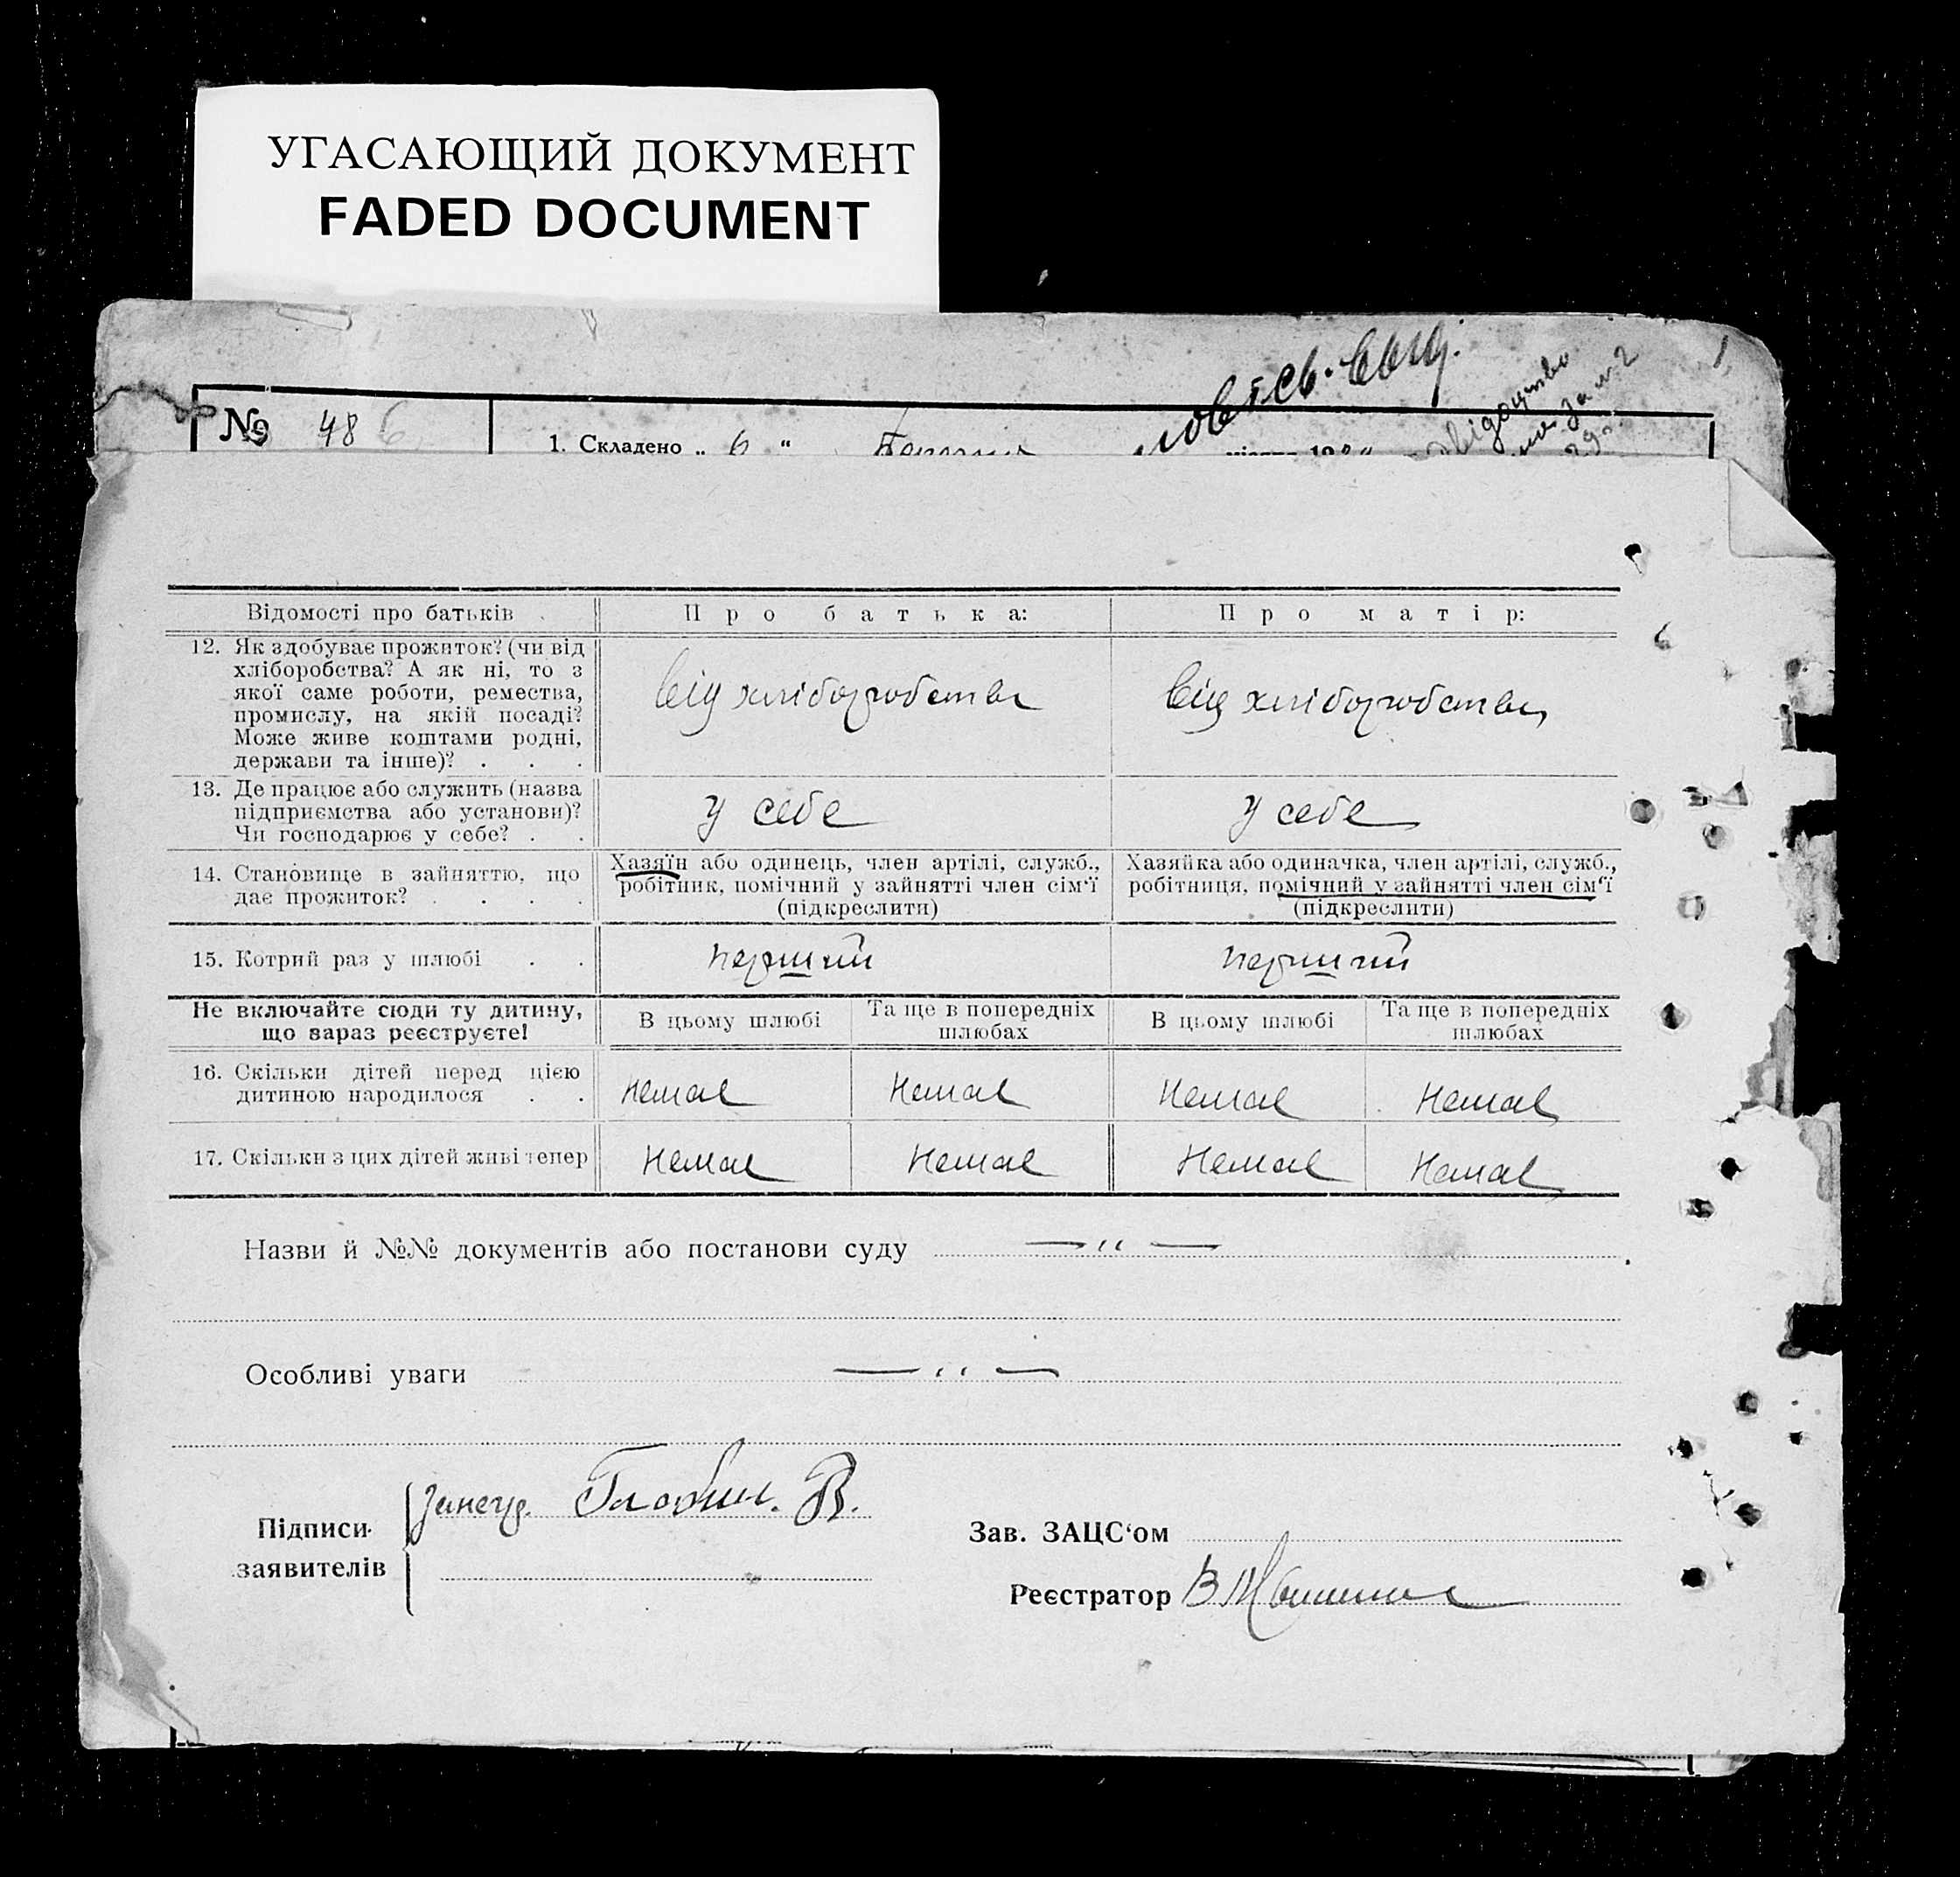 УГАСАЮЩИЙ ДОКУМЕНТ
FADED DOCUMENT
№ 486
1. Складено „ 6 “
Відомості про батьків
Про батька:
Про матір:
12. Як здобуває прожиток? (чи від
хліборобства? А як ні, то з
якої саме роботи, ремества,
промислу, на якій посаді?
Може живе коштами родні,
держави та інше)? . . .
від хліборобства
від хліборобства
13. Де працює або служить (назва
підприємства або установи)?
Чи господарює у себе? . .
у себе
у себе
14. Становище в зайняттю, що
дає прожиток? . . . .
Хазяїн або одинець, член артілі, служб.,
робітник, помічний у зайнятті член сім‘ї
(підкреслити)
Хазяйка або одиначка, член артілі, служб.,
робітниця, помічний у зайнятті член сім‘ї
(підкреслити)
15. Котрий раз у шлюбі . .
перший
перший
Не включайте сюди ту дитину,
що вараз реєструєте!
В цьому шлюбі
Та ще в попередніх
шлюбах
В цьому шлюбі
Та ще в попередніх
шлюбах
16. Скільки дітей перед цією
дитиною народилося . .
немає
немає
немає
немає
17. Скільки з цих дітей живі тепер
немає
немає
немає
немає
Назви й №№ документів або постанови суду — „ —
Особливі уваги — „ —
Підписи
заявителів
Зав. ЗАЦС‘ом
Реєстратор